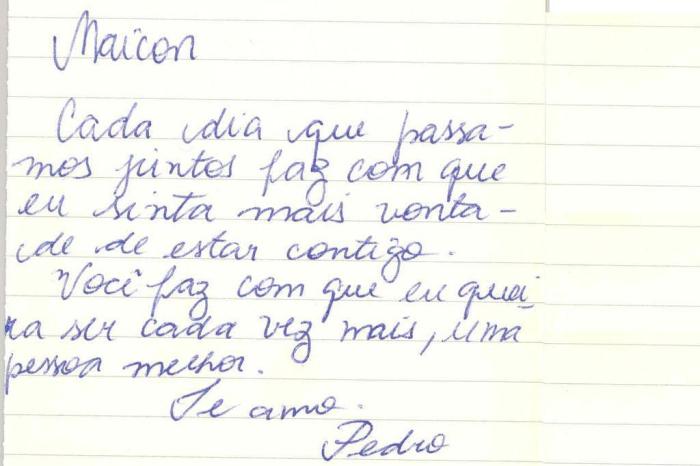 Maicon
Cada dia que passa-
mos juntos faz com que
eu sinta mais vonta-
de de estar contigo.
Você faz com que eu quei
ra ser cada vez mais, uma
pessoa melhor.
Te amo.
Pedro